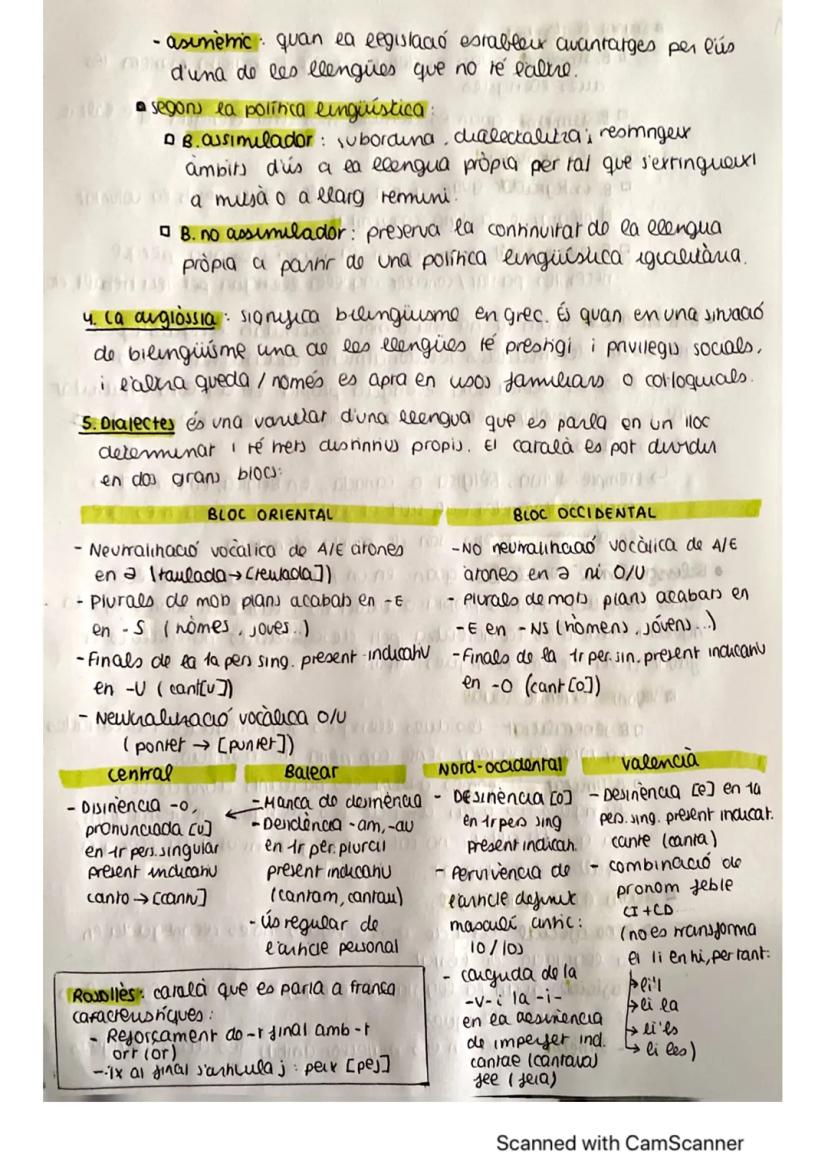 - asimètric: quan la legislació estableix avantatges per l'ús
d'una de les llengües que no té l'altre.
segons la política lingüística:
B. assimilador: subordina, dialectalitza i restringeix
àmbits d'ús a la llengua pròpia per tal que s'extringueixi
a mitjà o a llarg termini.
B. no assimilador: preserva la continuïtat de la llengua
pròpia a partir de una política lingüística igualitària.
4. La diglòssia: significa bilingüisme en grec. És quan en una situació
de bilingüisme una de les llengües té prestigi i privilegis socials,
i l'altra queda / només es apta en usos familiars o col·loquials.
5. Dialectes és una varietat d'una llengua que es parla en un lloc
determinat i té trets distintius propis. El català es pot dividir
en dos grans blocs:
BLOC ORIENTAL
- Neutralització vocàlica de A/E àtones
en ə (taulada → [teulada])
- Plurals de mots plans acabats en -E
en -S (nòmes, joves..)
- Finals de la 1a pers sing. present indicatiu
en -U (cant[u])
- Neutralització vocàlica O/U
(pontet → [puntet])
BLOC OCCIDENTAL
- NO neutralització vocàlica de A/E
àtones en ə ni O/U
- Plurals de mots plans acabats en
-E en -NS (hòmens, jóvens...)
- Finals de la 1r per. sin. present indicatiu
en -O (cant[o])
Central
- Disinència -o,
pronunciada [u]
en 1r pers. singular
present indicatiu
canto → [cantu]
Balear
- Manca de desinència
- Desidència -am, -au
en 1r per. plural
present indicatiu
(cantam, cantau)
- Ús regular de
l'article personal
Nord-occidental
- DESinència [o]
en 1r pers sing
present indicati.
- Pervivència de
l'article definit
masculí antic:
lo / los
- caiguda de la
-v- i la -i-
en la desinència
de imperfet ind.
cantae (cantava)
fee (feia)
Valencià
- Desinència [e] en 1a
pers. sing. present indicat.
cante (canta)
- combinació de
pronom feble
CI + CD
(no es transforma
el li en hi, per tant:
li'l
li la
li'ls
li les)
Rossellès: català que es parla a frança
característiques:
- Reforçament de -r final amb -t
ort (or)
- -ix al final s'articula j: peix [pej]
Scanned with CamScanner